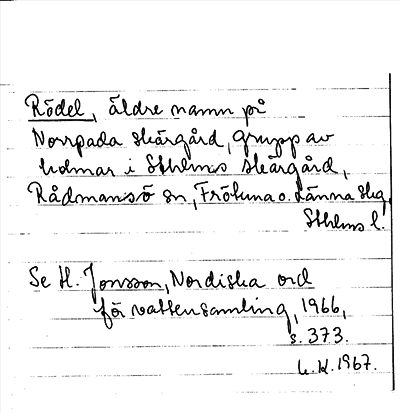 Rödel, äldre namn på
Norrpada skärgård, grupp av
holmar i Sthlms skärgård,
Rådmansö sn, Frötuna o. Länna skg,
Sthlms l.
Se H. Jonsson, Nordiska ord
för vattensamling, 1966,
s. 373.
1967.